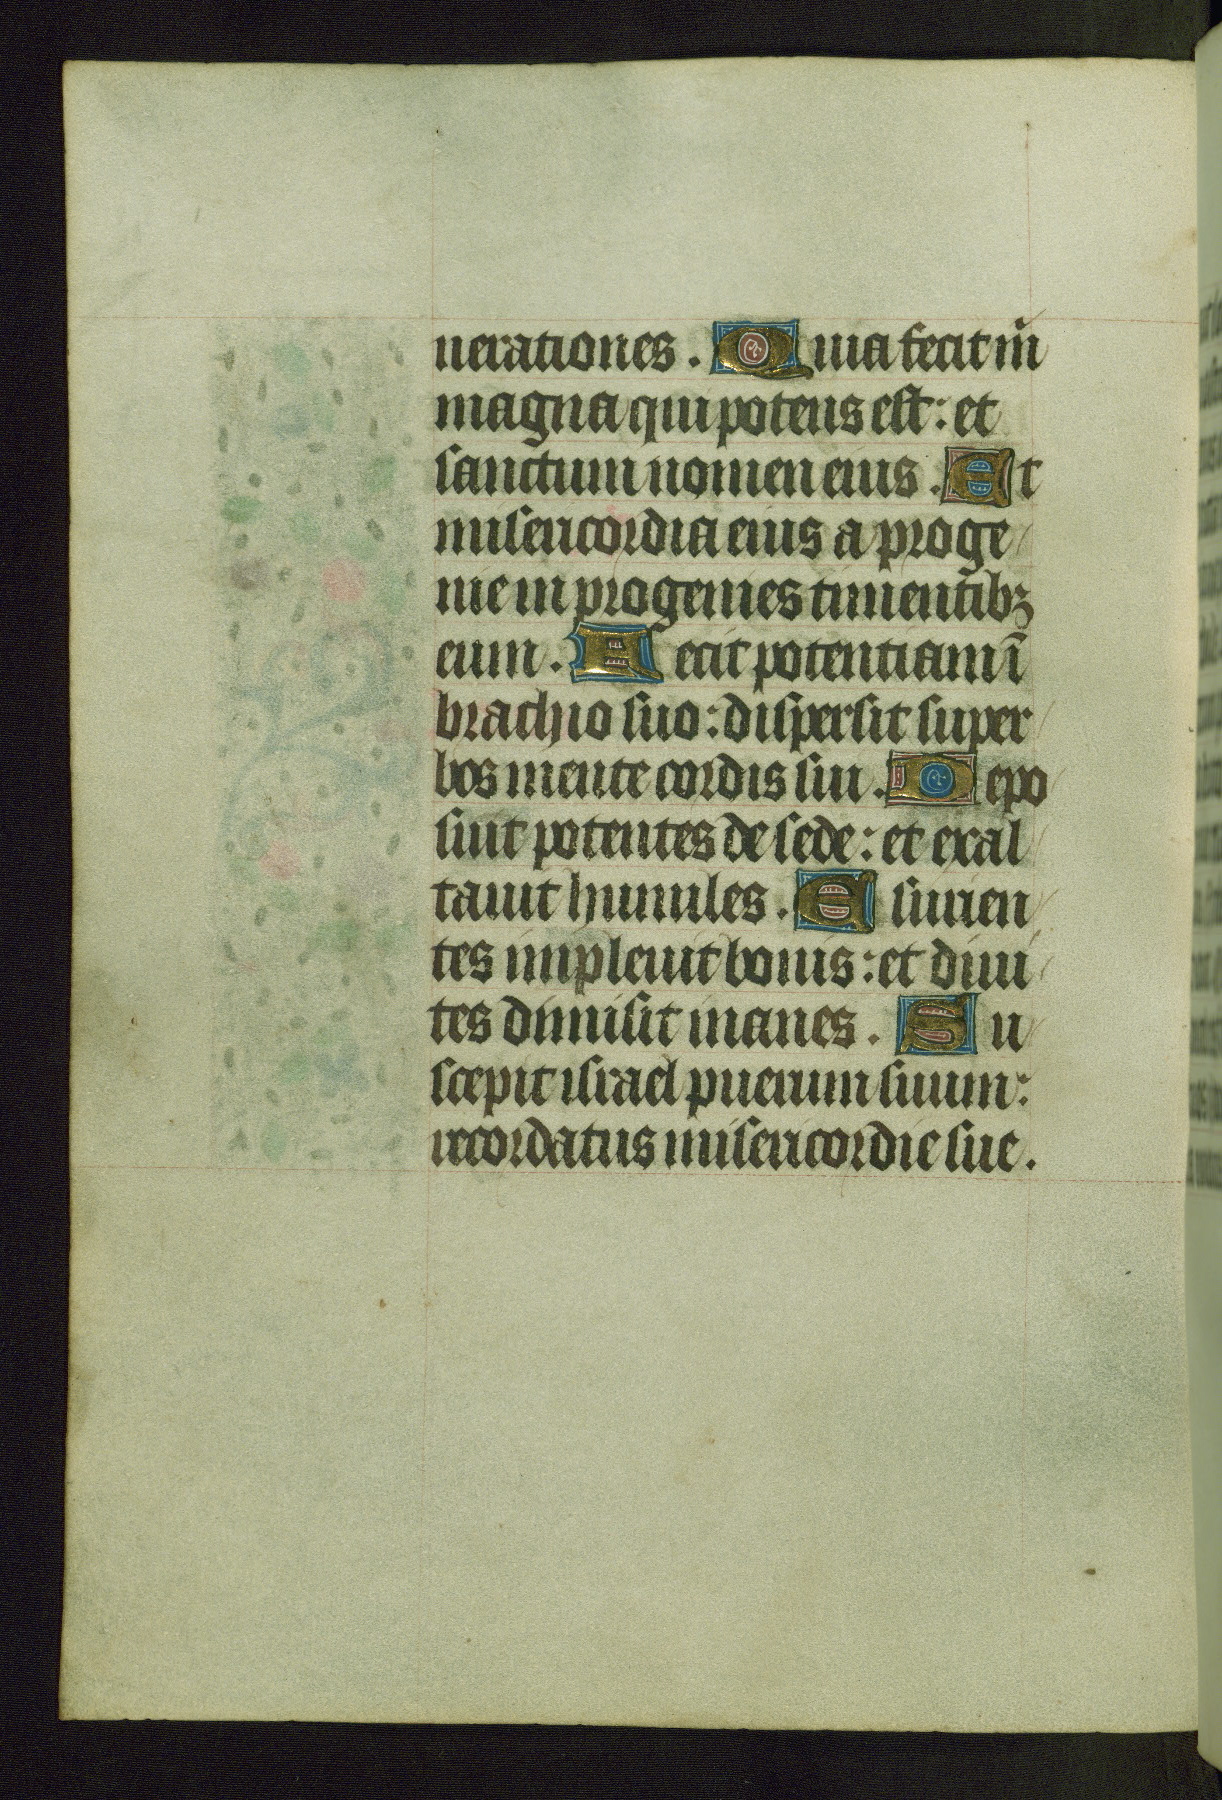 nerationes. Quia fecit m̄
magna qui potens est: et
sanctum nomen eius. Et
misericordia eius a proge
nie in progenies timentibꝫ
eum. Fecit potentiam ī
brachio suo: dispersit super
bos mente cordis sui. Depo
suit potentes de sede: et exal
tauit humiles. Esurien
tes impleuit bonis: et diui
tes dimisit inanes. Su
scepit israel puerum suum:
recordatus misericordie sue.